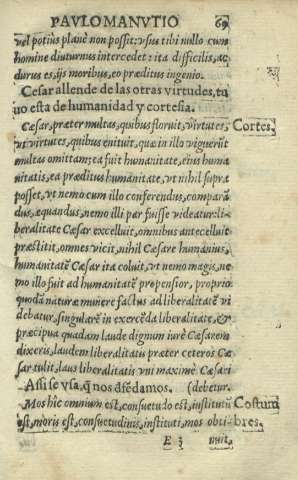 PAVLO MANVTIO 69
vel potiùs planè non possit: vsus tibi nullo cum
homine diuturnus intercedet: ita difficilis, ac
durus es, ijs moribus, eo præditus ingenio.
Cesar allende de las otras virtudes, tu
uo esta de humanidad y cortesia.
Cæsar, præter multas, quibus floruit, virtutes, Cortes.
vt virtutes, quibus enituit, quæ in illo viguerūt
multas omittam; ea fuit humanitate, eius huma
nitatis, ea præditus humanitate, vt nihil suprà
posset, vt nemo cum illo conferendus, comparan
dus, æquandus, nemo illi par fuisse videatur: li-
beralitate Cæsar excelluit, omnibus antecelluit
præstitit, omnes vicit, nihil Cæsare humanius,
humanitatē Cæsar ita coluit, vt nemo magis, ne
mo illo fuit ad humanitatē propensior, proprio
quodā naturæ munere factus ad liberalitatē vi
debatur, singularē in exercēda liberalitate, &
præcipua quadam laude dignum iurè Cæsarem
dixeris, laudem liberalitatis præter ceteros Cæ
sar tulit, laus liberalitatis vni maximè Cæsari
Assi se vsa, q̄ nos dfēdamos. (debetur.
Mos hic omnium est, consuetudo est, institutū Costum
est, moris est, consuetudinis, instituti, mos obti- bres.
E 3 nuit,